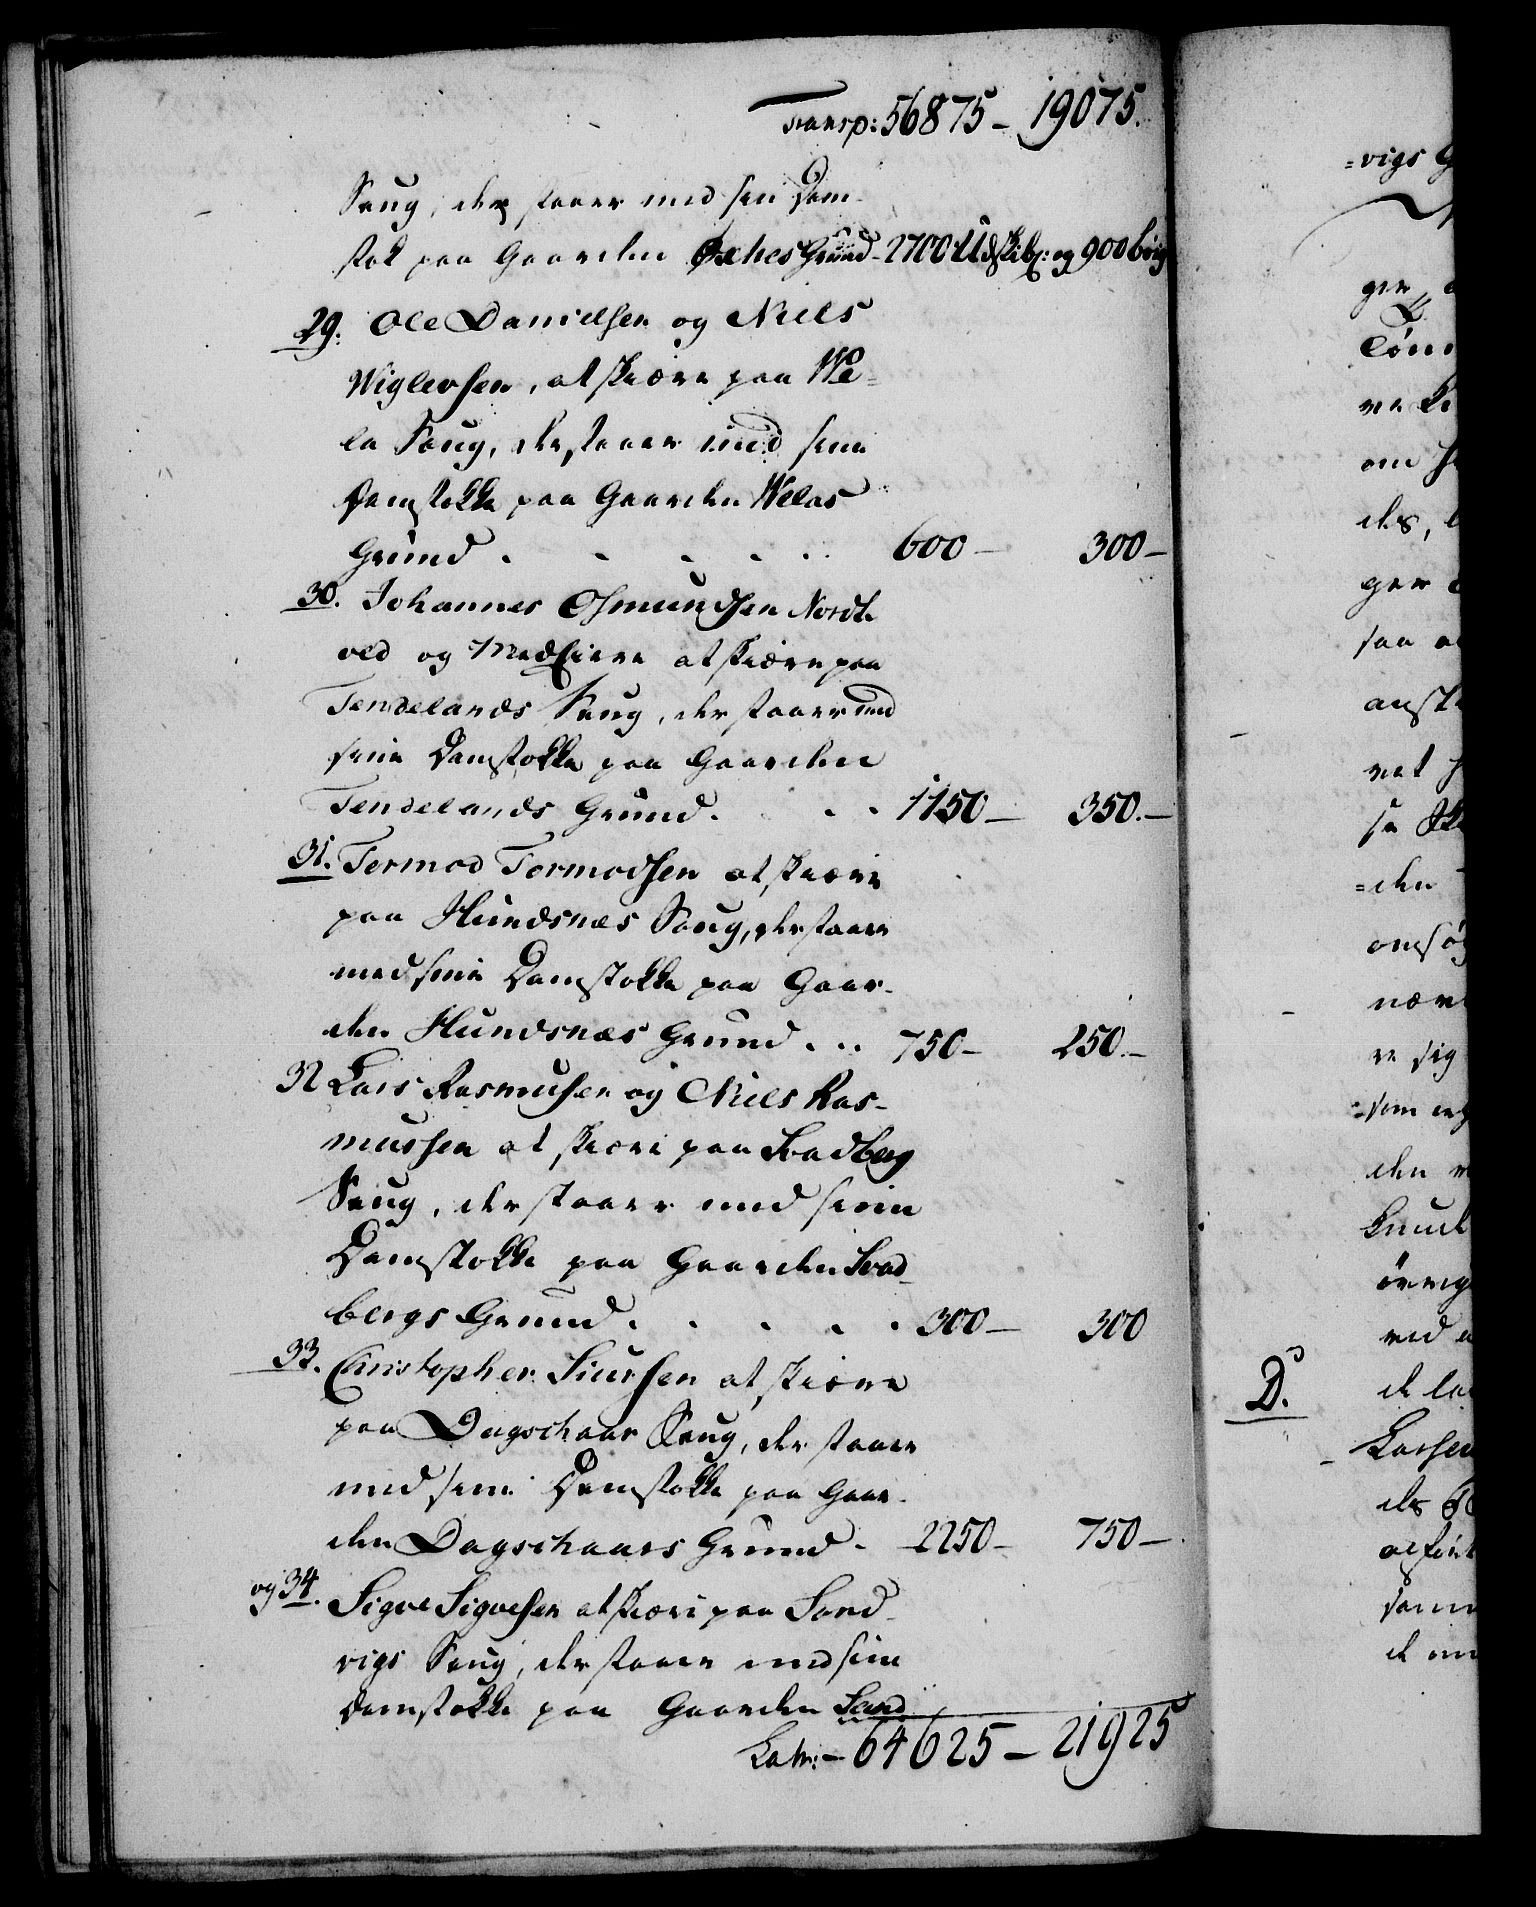 Transp: 56875 - 19075.
Saug, der staaer med sin Dam-
stok paa Gaarden Øxnes Grund - 2700 Udskibs: og 900 bøig
29. Ole Danielsen og Niels
Wiglevsen, at skiære paa We-
la Saug, der staaer med sine
Damstokke paa Gaarden Welas
Grund . . . . . 600 - 300 -
30. Johannes Osmundsen Nordt-
ved og Medeiere at skiære paa
Tendelands Saug, der staaer med
sine Damstokke paa Gaarden
Tendelands Grund . . . 1150 - 350. -
31. Tormod Tormodsen at skiære
paa Hundsnæs Saug, der staaer
med sine Damstokke paa Gaar-
den Hundsnæs Grund . . . 750 - 250. -
32 Lars Rasmusen og Niels Ras-
mussen at skiære paa Svadberg
Saug, der staaer med sine
Damstokke paa Gaarden Svad-
bergs Grund . . . . . 300 - 300
33. Christopher Siursen at skiære
paa Dagschaar Saug, der staaer
med sine Damstokke paa Gaar-
den Dagschaars Grund - 2250 - 750 -
og 34. Sigve Sigvesen at skiære paa Sand-
vigs Saug, der staaer med sine
Damstokke paa Gaarden Sand
Latr: - 64625 - 21925
=vigs G
ger
Tøm
om
des,
ger
saa
anst
ret
=den
ansø
nær
re sig
=som
den
Knud
øvrig
ved
D.
de la
Larsen
des
samm